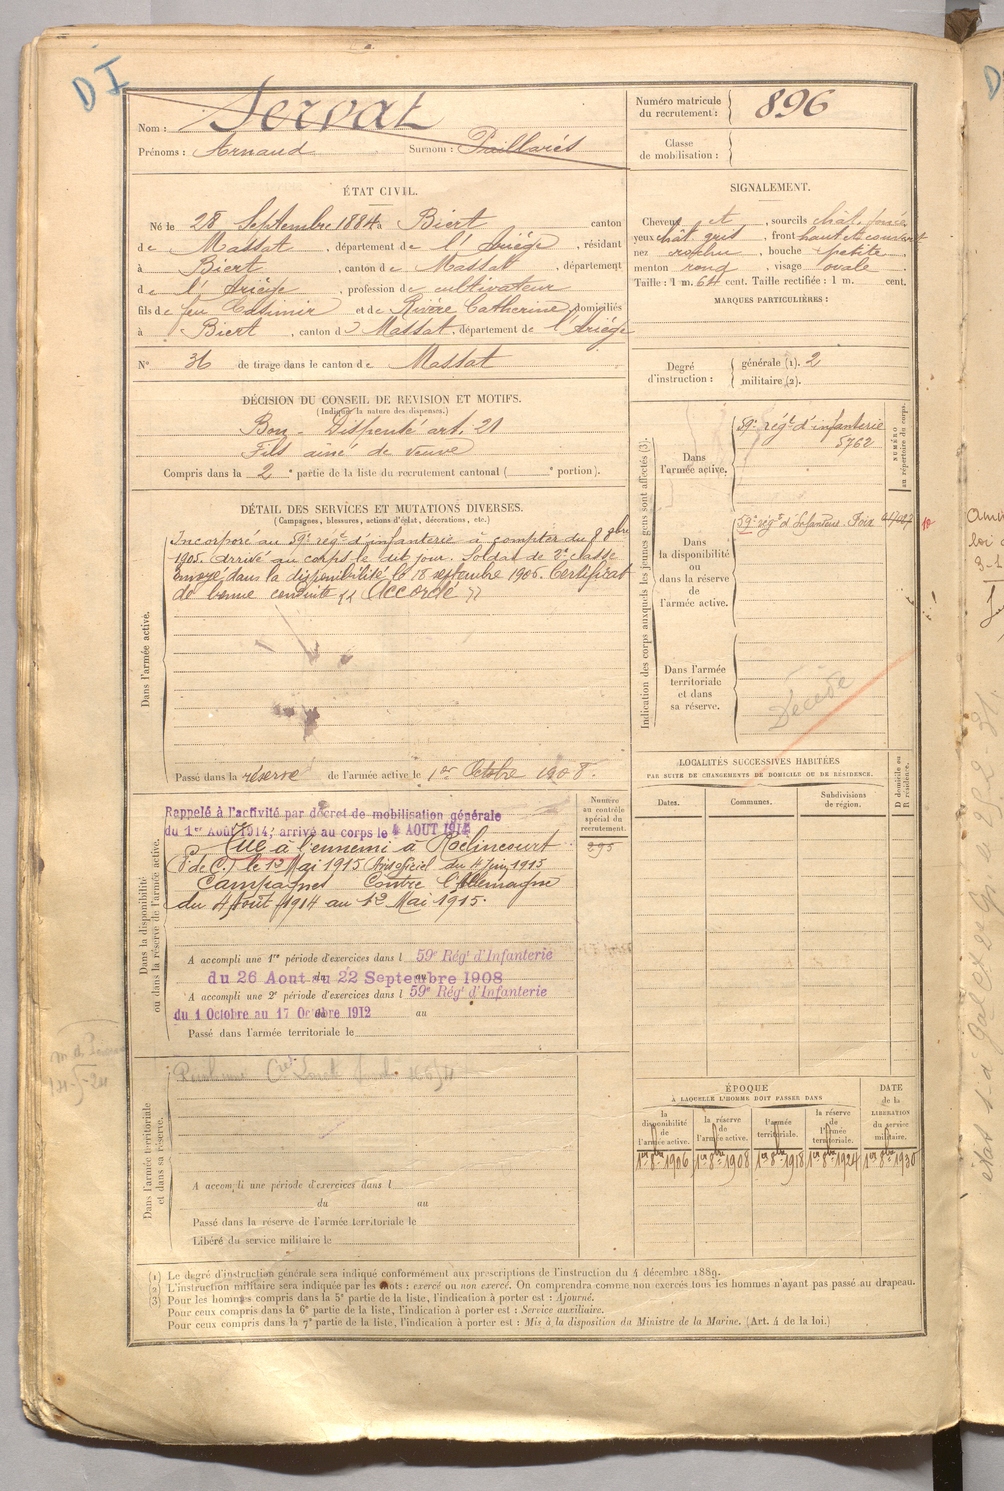 DI
Nom : Servat
Prénoms : Arnaud Surnom : Paillarés
Numéro matricule du recrutement : 896
Classe de mobilisation :
ÉTAT CIVIL.
Né le 28 Septembre 1884 à Biert canton
de Massat, département de l'Ariège, résidant
à Biert, canton de Massat, département
de l'Ariège, profession de cultivateur
fils de feu Casimir et de Rivère Catherine domiciliés
à Biert, canton d Massat, département de l'Ariège
N° 36 de tirage dans le canton de Massat
SIGNALEMENT.
Cheveux et, sourcils chat. foncé
yeux chât. gris, front haut et couvert
nez, bouche petite
menton rond, visage ovale.
Taille : 1 m. 64 cent. Taille rectifiée : 1 m. cent.
MARQUES PARTICULIÈRES :
Degré d'instruction : générale (1). 2
militaire (2).
DÉCISION DU CONSEIL DE REVISION ET MOTIFS.
(Indiquer la nature des dispenses.)
Bon - Dispensé art. 21
Fils ainé de veuve
Compris dans la 2e partie de la liste du recrutement cantonal ( e portion).
DÉTAIL DES SERVICES ET MUTATIONS DIVERSES.
(Campagnes, blessures, actions d'éclat, décorations, etc.)
Dans l'armée active.
Incorporé au 59e régt d'infanterie à compter du 8 8bre
1905. Arrivé au corps le dit jour. Soldat de 2e classe
Envoyé dans la disponibilité le 18 septembre 1906. Certificat
de bonne conduite " Accordé "
Passé dans la réserve de l'armée active le 1er Octobre 1908.
Indication des corps auxquels les jeunes gens sont affectés (3).
NUMÉRO au répertoire du corps.
Dans l'armée active.
59e régt d'infanterie
5762
Dans la disponibilité ou dans la réserve de l'armée active.
59e régt d'Infanterie Foix
Dans l'armée territoriale et dans sa réserve.
Décédé
LOCALITÉS SUCCESSIVES HABITÉES
PAR SUITE DE CHANGEMENTS DE DOMICILE OU DE RÉSIDENCE.
Dates. Communes. Subdivisions de région.
D domicile ou R résidence.
Dans la disponibilité ou dans la réserve de l'armée active.
Numéro au contrôle spécial du recrutement.
295
Rappelé à l'activité par décret de mobilisation générale
du 1er Août 1914, arrivé au corps le 4 AOUT 1914
Tué à l'ennemi à Roclincourt
(P. de C.) le 12 Mai 1915 (Avis officiel du 4 Juin 1915
Campagnes Contre l'Allemagne
du 4 Août 1914 au 12 Mai 1915.
A accompli une 1re période d'exercices dans l 59e Régt d'Infanterie
du 26 Aout au 22 Septembre 1908
A accompli une 2e période d'exercices dans l 59e Régt d'Infanterie
du 1 Octobre au 17 Octobre 1912 au
Passé dans l'armée territoriale le
Dans l'armée territoriale et dans sa réserve.
A accompli une période d'exercices dans l
du au
Passé dans la réserve de l'armée territoriale le
Libéré du service militaire le
ÉPOQUE
À LAQUELLE L'HOMME DOIT PASSER DANS
la disponibilité de l'armée active.
la réserve de l'armée active.
l'armée territoriale.
la réserve de l'armée territoriale.
DATE de la LIBÉRATION du service militaire.
1er 8bre 1906 1er 8bre 1908 1er 8bre 1918 1er 8bre 1924 1er 8bre 1930
(1) Le degré d'instruction générale sera indiqué conformément aux prescriptions de l'instruction du 4 décembre 1889.
(2) L'instruction militaire sera indiquée par les mots : exercé ou non exercé. On comprendra comme non exercés tous les hommes n'ayant pas passé au drapeau.
(3) Pour les hommes compris dans la 5e partie de la liste, l'indication à porter est : Ajourné.
Pour ceux compris dans la 6e partie de la liste, l'indication à porter est : Service auxiliaire.
Pour ceux compris dans la 7e partie de la liste, l'indication à porter est : Mis à la disposition du Ministre de la Marine. (Art. 4 de la loi.)